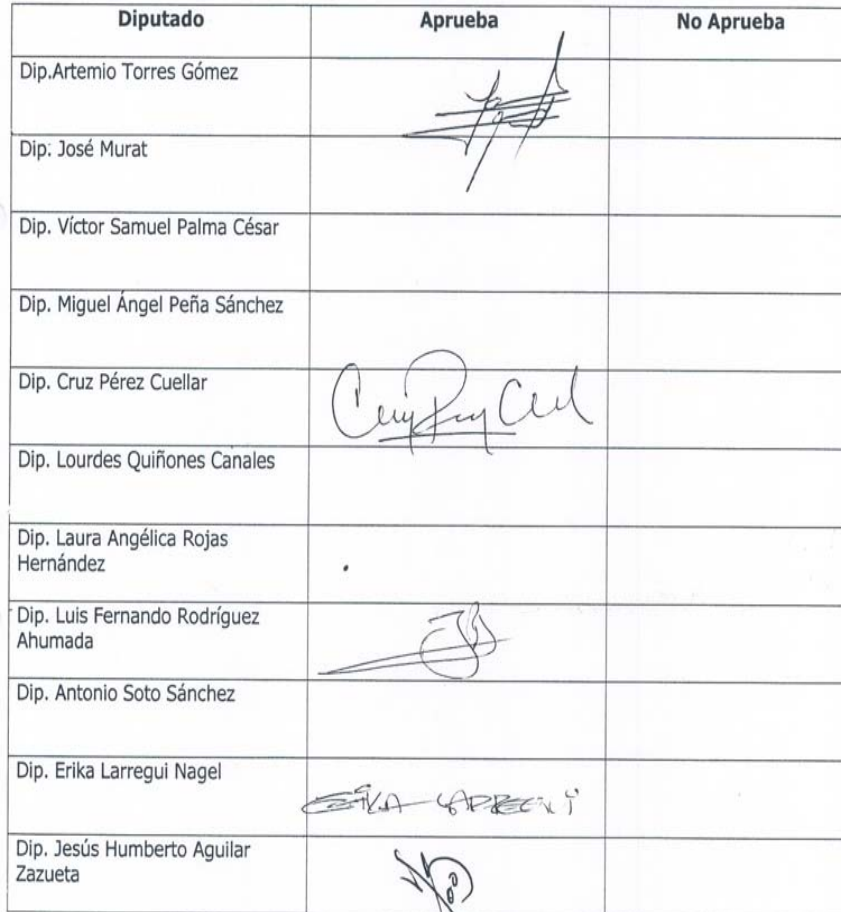 Diputado Aprueba No Aprueba
Dip.Artemio Torres Gómez
Dip. José Murat
Dip. Víctor Samuel Palma César
Dip. Miguel Ángel Peña Sánchez
Dip. Cruz Pérez Cuellar
Dip. Lourdes Quiñones Canales
Dip. Laura Angélica Rojas
Hernández
Dip. Luis Fernando Rodríguez
Ahumada
Dip. Antonio Soto Sánchez
Dip. Erika Larregui Nagel
ERIKA LARREGUI
Dip. Jesús Humberto Aguilar
Zazueta